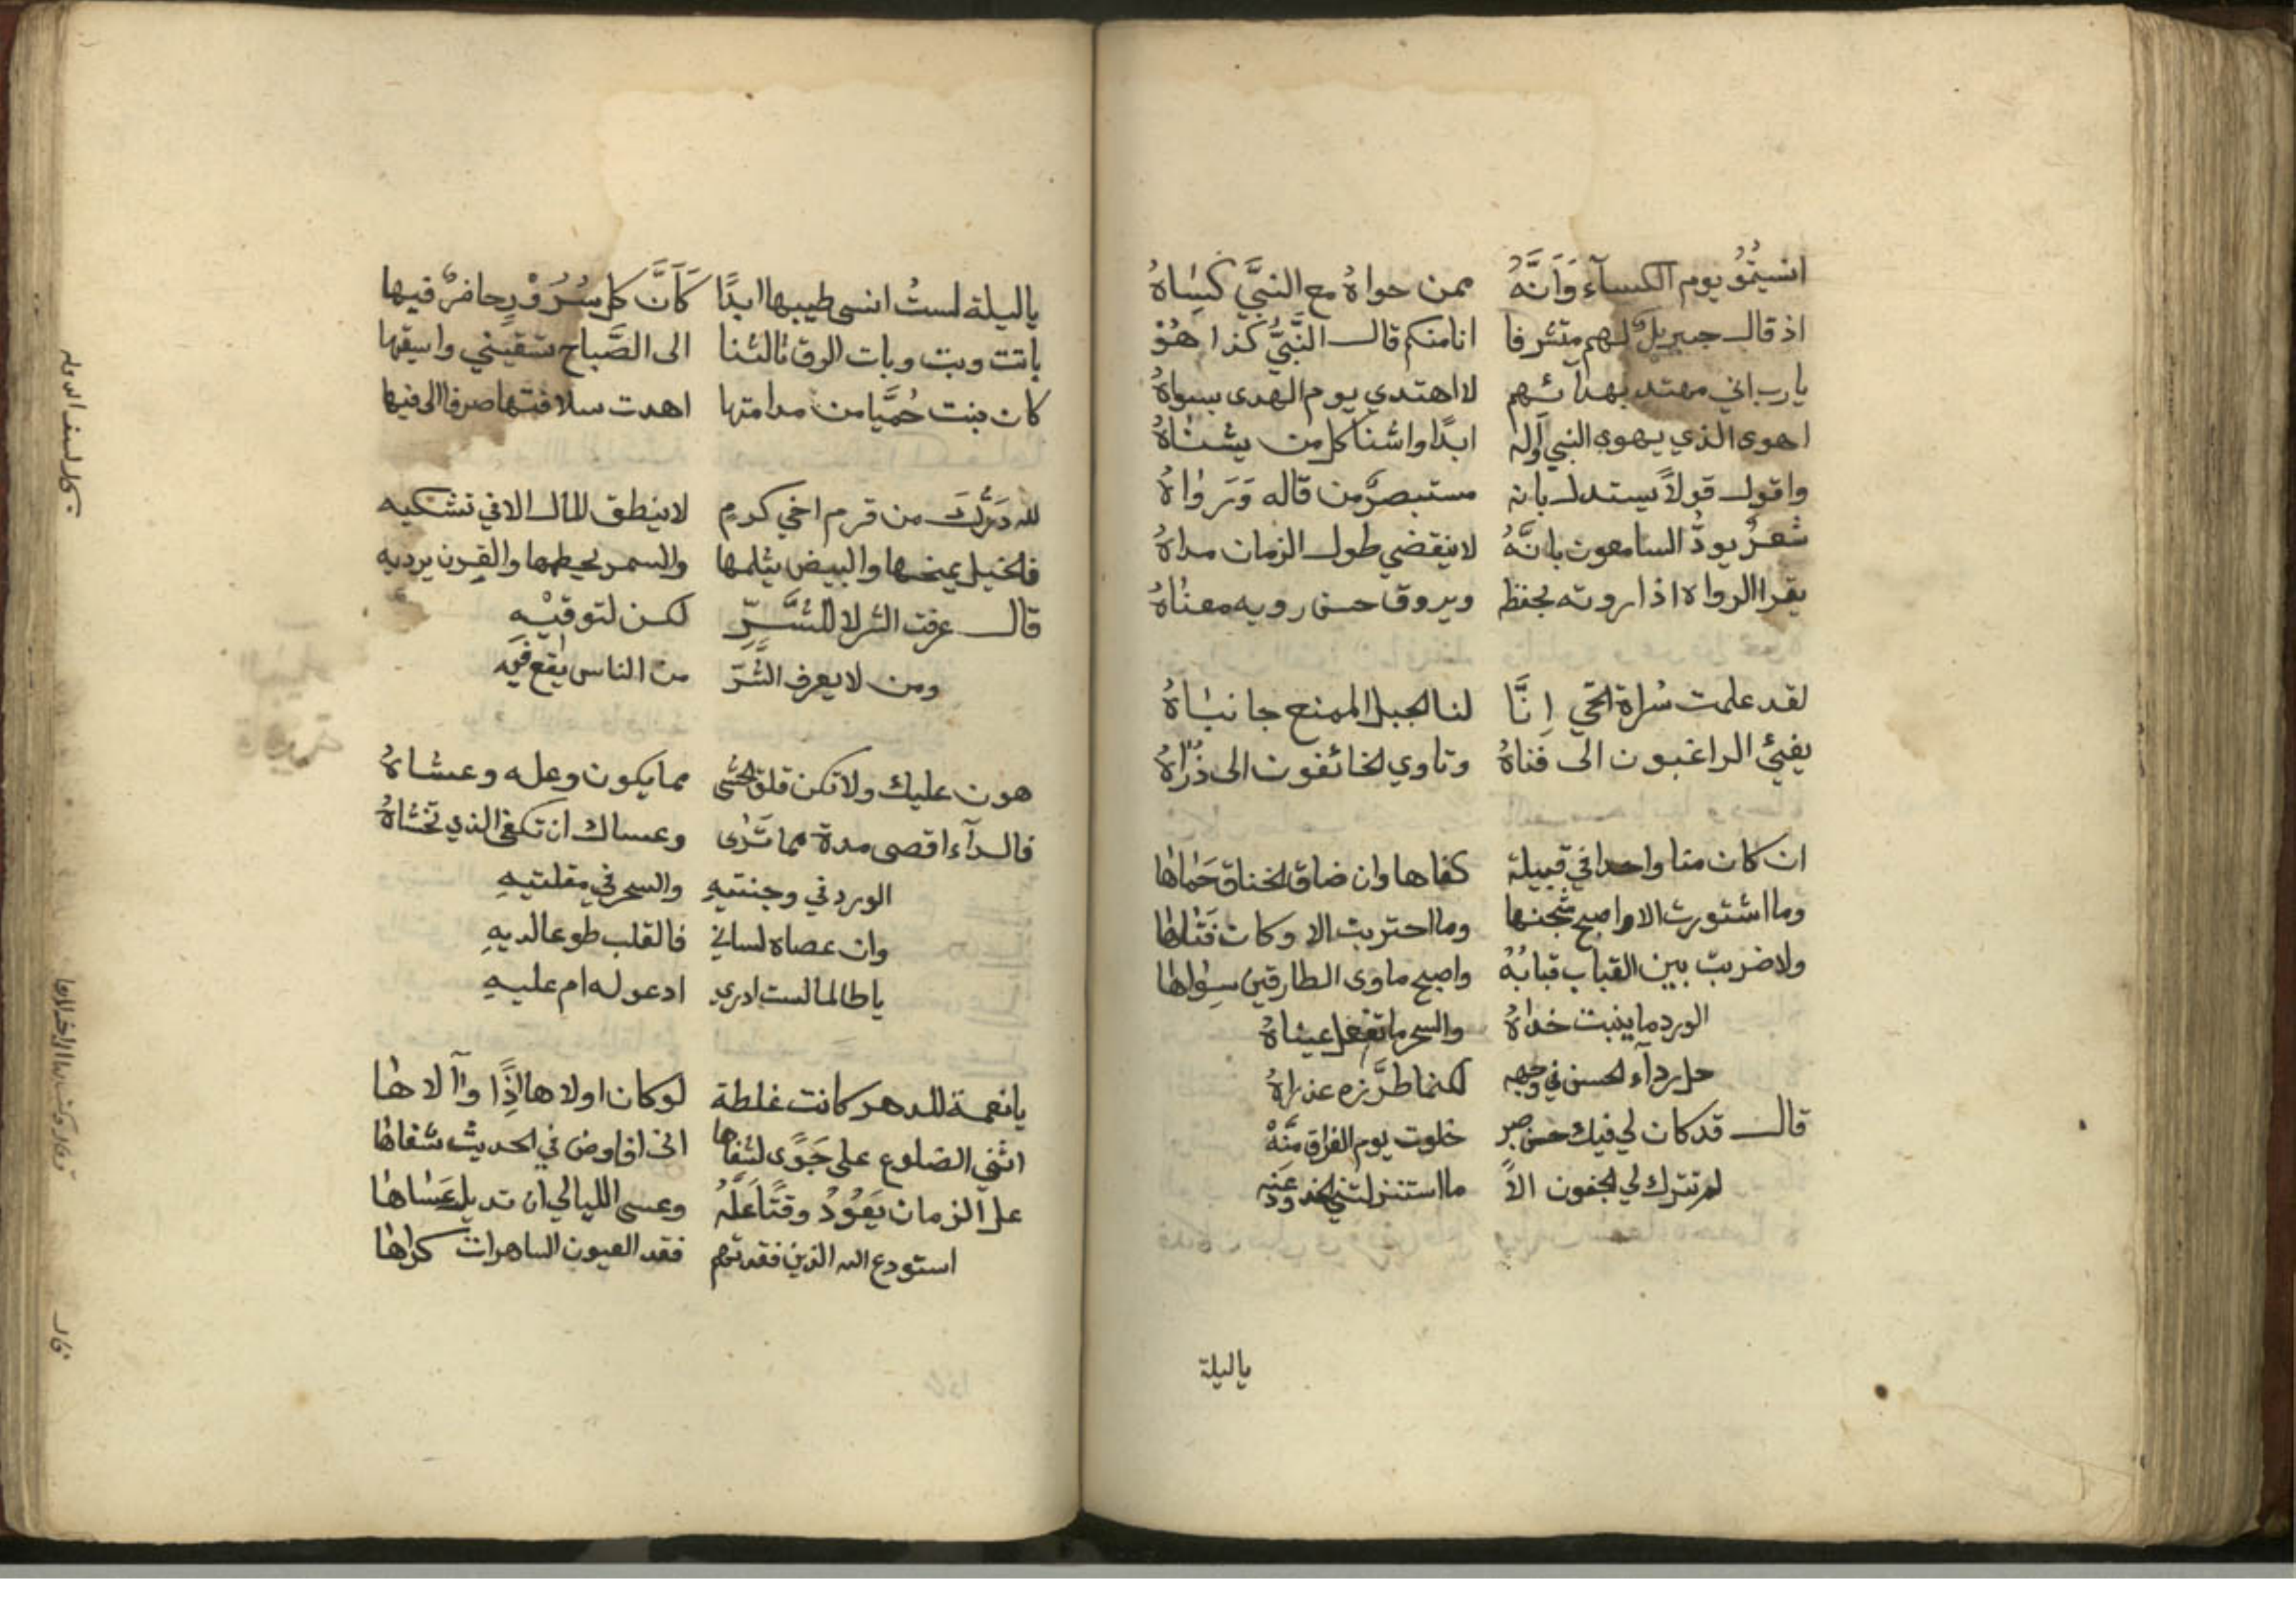 انسيتمُو يوم الكسآء وَاَنَّهُ ممن حواهُ مع النبيَّ كِسَاهُ
اذ قال جبريلٌ لهم متشرفا انا منكم قال النَّبيُّ كذا هُوْ
يارب اني مهتد بهدائهم لا اهتدي يوم الهدى بسواهُ
اهوى الذي يهوى النبي وآله ابدًا واشنا كل من يشناهُ
واقول قولاً يستدل بانه مستبصرٌ من قاله وَرَوَاهُ
شعرٌ يودُّ السامعون بانَّهُ لا ينقضي طول الزمان مداهُ
يقرا الرواه اذا روته بحفظ ويروق حسن رويه معناهُ
لقد علمت سُراة الحي اِنَّا لنا الجبل الممنع جانباهُ
يفيئ الراغبون الى فناهُ وتاوي الخائفون الى ذُرَاهُ
ان كان منا واحدا في قبيلة كفاها وان ضاق الخناق حَمَاها
وما اشتورت الا واصبح شيخها وما احتربت الا وكان فَتَاها
ولا ضربت بين القباب قبابُهُ واصبح ماوى الطارقين سِواها
الورد ما ينبت خداهُ والسحر ما تفعل عيناهُ
حل ردآء الحسن في وجهه لكنما طرَّزه عذراهُ
قال قد كان لي فيك حسن صبر خلوت يوم الفراق منْهُ
لم تترك لي الجفون الاَّ ما استنزلتني الخدود عنه
ياليلة
ياليلة لستُ انسى طيبها ابدًا كَاَنَّ كل سُرُوْرٍ حاضرٌ فيها
باتت وبت وبات الزق ثالثنا الى الصَّباح تسقيني واسقيها
كان بنت حُمَّيا من مدامتها اهدت سلافتها صرفا الى فيها
لله دَرُّكَ من قرم اخي كرمٍ لا ينطق المال الا في تشكيه
فالخيل يمنحها والبيض يثلمها والسمر يحطمها والقرن يرديه
قال عرفت الشر لا للشَّرِّ لكن لتوقيْه
ومن لا يعرف الشَّرّ من الناس يقع فيه
هون عليك ولا تكن قلق الحشى مما يكون وعله وعساهُ
فالدآء اقصى مدة مما تَرى وعساك ان تكفى الذي تخشاهُ
الورد في وجنتيهِ والسحر في مقلتيهِ
وان عصاه لساني فالقلب طوعا لديهِ
يا طالما لست ادري ادعو له ام عليهِ
يا نعمة للدهر كانت غلطة لو كان اولاها اذًا وآلاها
اثني الضلوع على جَوًى لشفاها اني افاوض في الحديث شفاها
عل الزمان يَعُوْدُ وقتًا عَلَّهُ وعسى الليالي ان تديل عَسَاها
استودع الله الذين فقدتهم فقد العيون الساهرات كراها